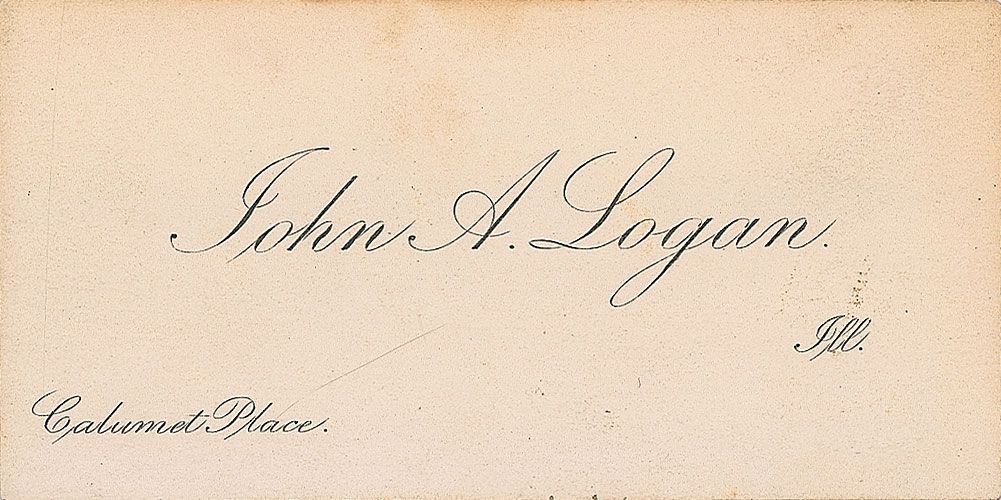 John A. Logan.
Ill.
Calumet Place.